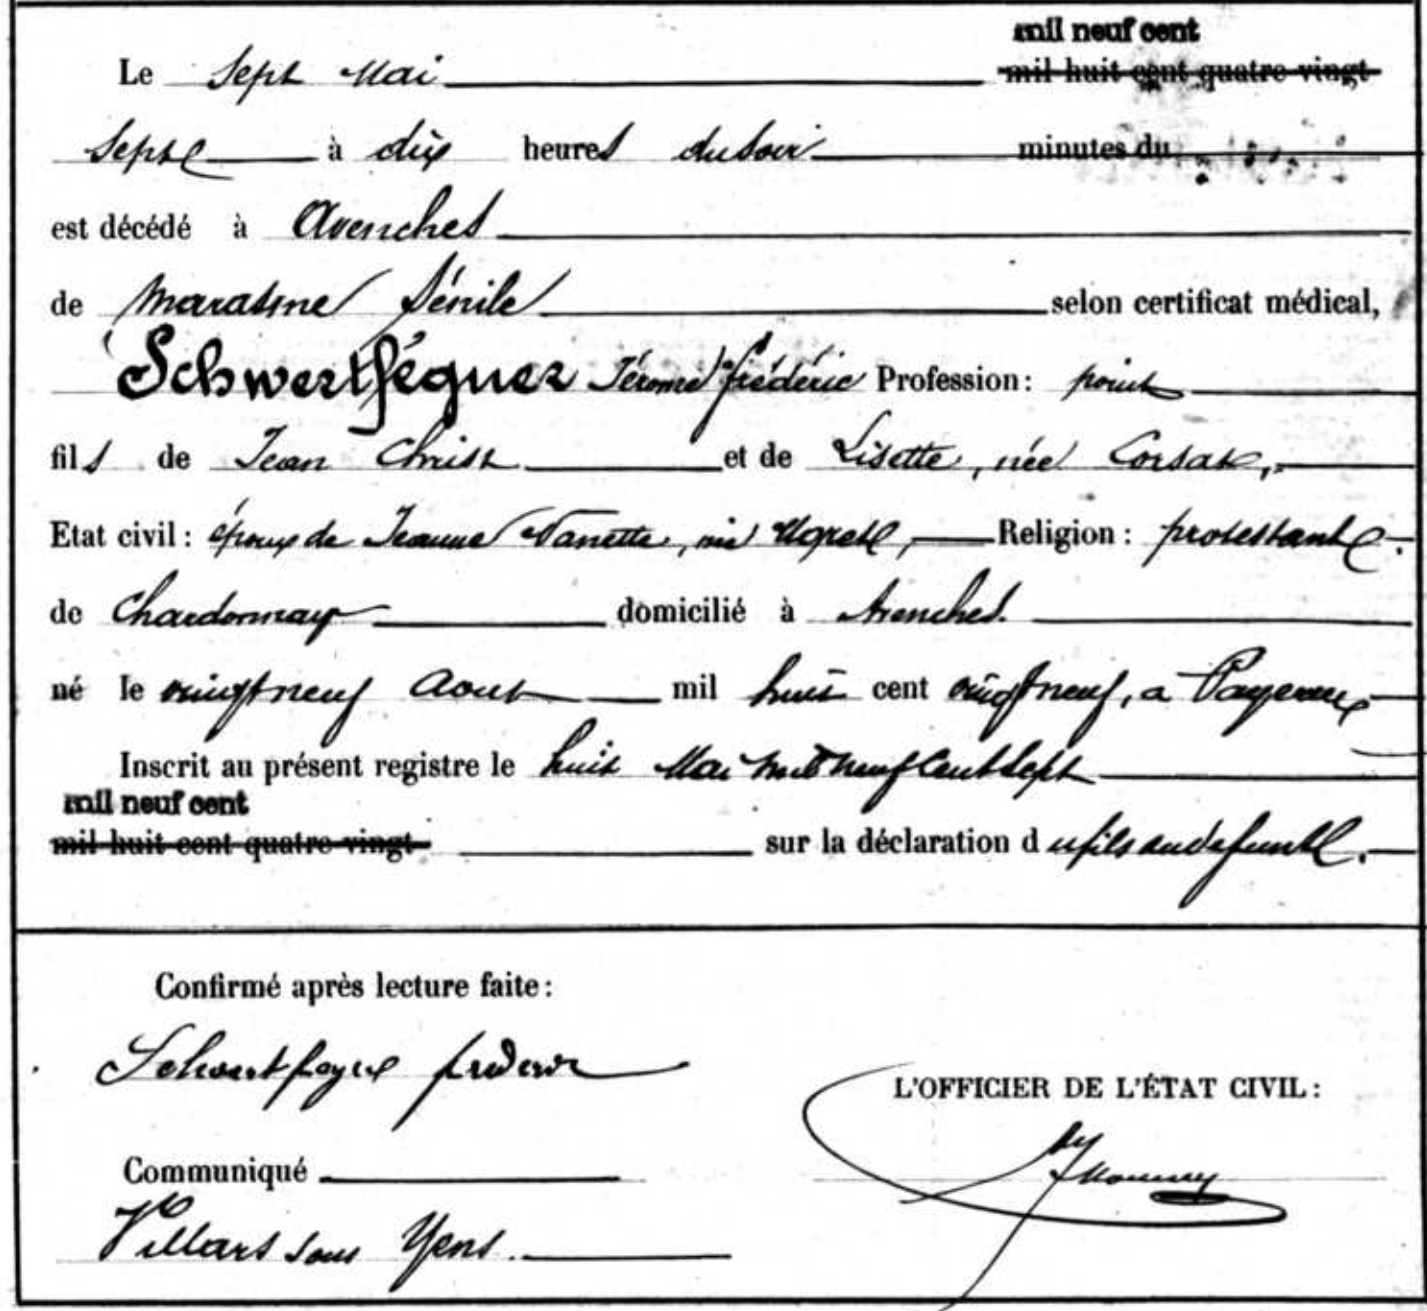 mil neuf cent
Le Sept Mai mil huit cent quatre-vingt
Sept à dix heures du Soir minutes du
est décédé à Avenches
de Marasme Sénile selon certificat médical,
Schwertféguer Jérome frédéric Profession: point
fils de Jean Christ et de Lisette, née Corsat,
Etat civil: époux de Jeanne Nanette, née Religion: protestante.
de Chardonnay domicilié à Avenches.
né le vingt neuf Aout mil huit cent vingt neuf, a Payerne
Inscrit au présent registre le huit Mai mil neuf Cent Sept
mil neuf cent
mil huit cent quatre-vingt sur la déclaration du fils au defunt.
Confirmé après lecture faite:
L'OFFICIER DE L'ÉTAT CIVIL:
Communiqué
Villars sous Yens.